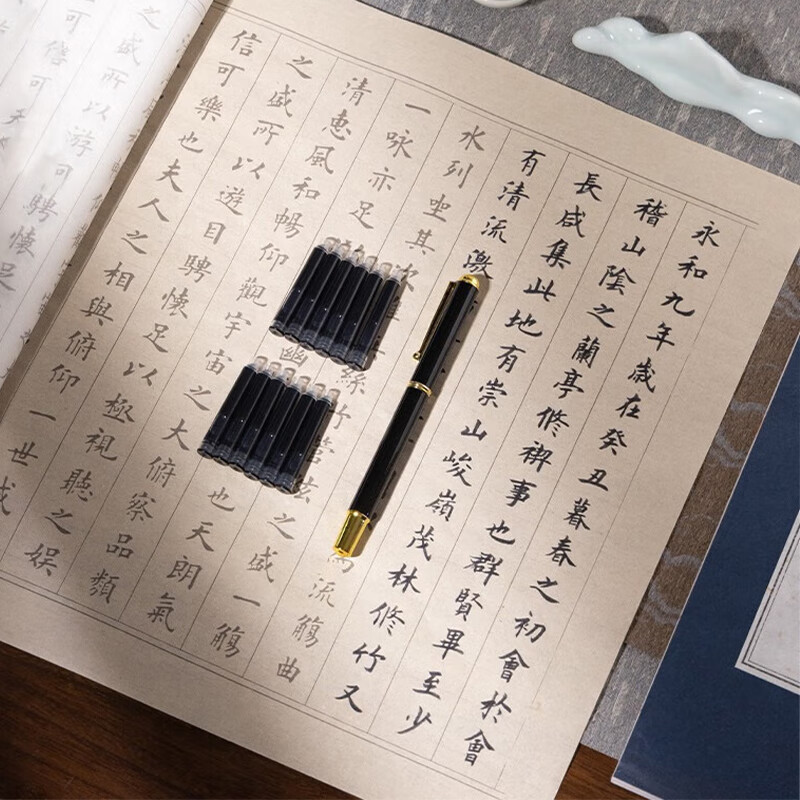 永和九年歲在癸丑暮春之初會於會
稽山陰之蘭亭修禊事也群賢畢至少
長咸集此地有崇山峻嶺茂林修竹又
有清流激 流觴曲
水列坐其次 絲竹管弦之盛一觴
一詠亦足 幽 也天朗氣
清惠風和暢仰觀宇宙之大俯察品類
之盛所以遊目騁懷足以極視聽之娛
信可樂也夫人之相與俯仰一世或
之盛所以游可騁懷足